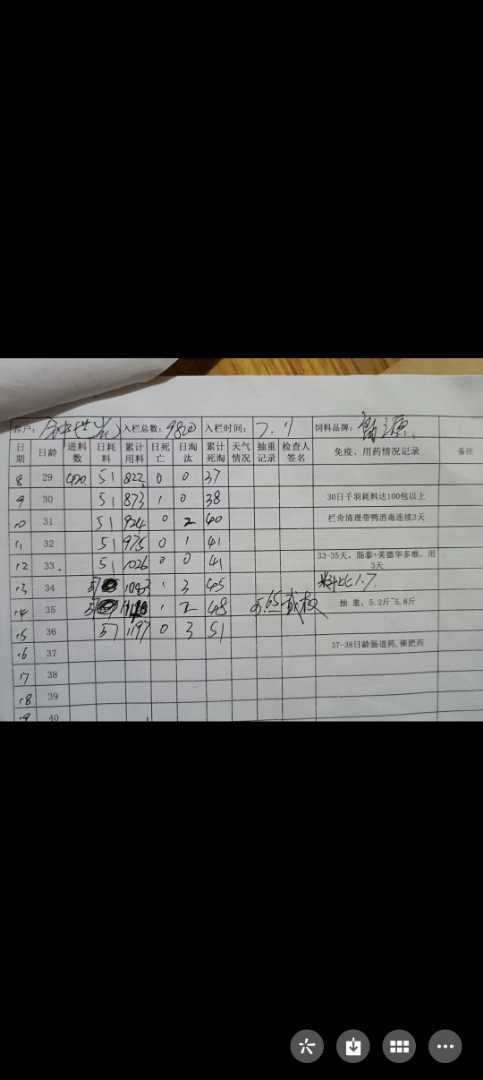 入栏总数：9820 入栏时间：7.11 饲料品牌：
日期 日龄 进料数 日耗料 累计用料 日死亡 日淘汰 累计死淘 天气情况 抽重记录 检查人签名 免疫、用药情况记录 备注
8 29 400 51 822 0 0 37
9 30 51 873 1 0 38 30日千羽耗料达100包以上
10 31 51 924 0 2 40 栏舍清理带鸭消毒连续3天
11 32 51 975 0 1 41
12 33 51 1026 0 0 41 33-35天，脂泰+美德华多维，用3天
13 34 57 1083 1 3 45 料比1.7
14 35 57 1140 1 2 48 5.65 抽重，5.2斤~5.8斤
15 36 57 1197 0 3 51
16 37 37-38日龄肠道药，顿肥药
17 38
18 39
19 40